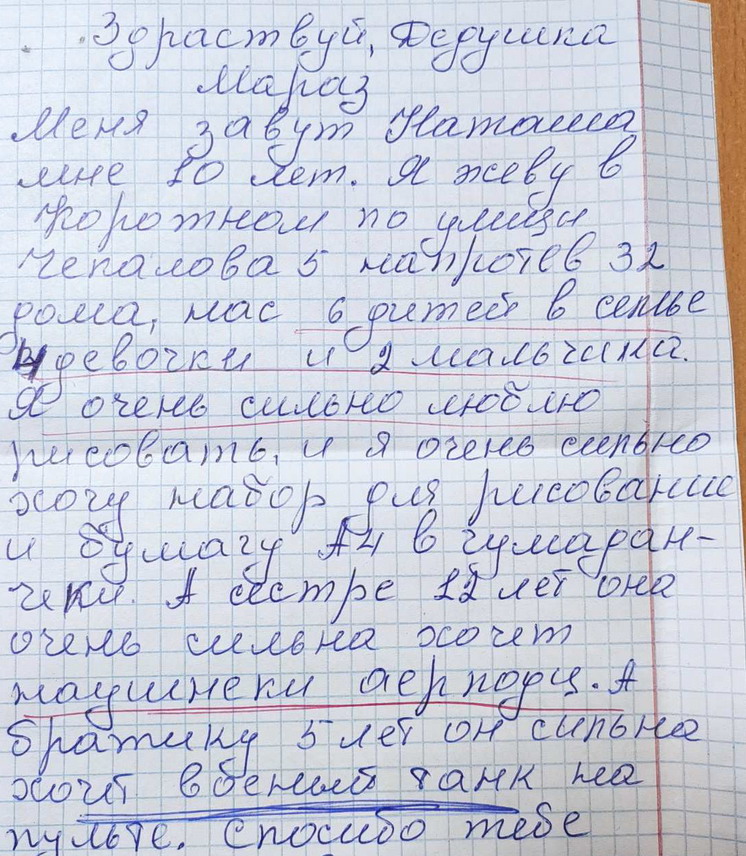 Здраствуй, Дедушка
Мараз
Меня завут Наташа
мне 10 лет. Я жеву в
Коротном по улищи
Чепалова 5 напротев 32
дома, нас 6 дитей в семье
4 девочки и 2 мальчика.
Я очень сильно люблю
рисовать, и я очень сильно
хочу набор для рисование
и бумагу А4 в
чеки. А сестре 12 лет она
очень сильна хочет
наушнеки аерподц. А
братику 5 лет он сильна
хочет вбеный танк на
пульте. Спосибо тебе